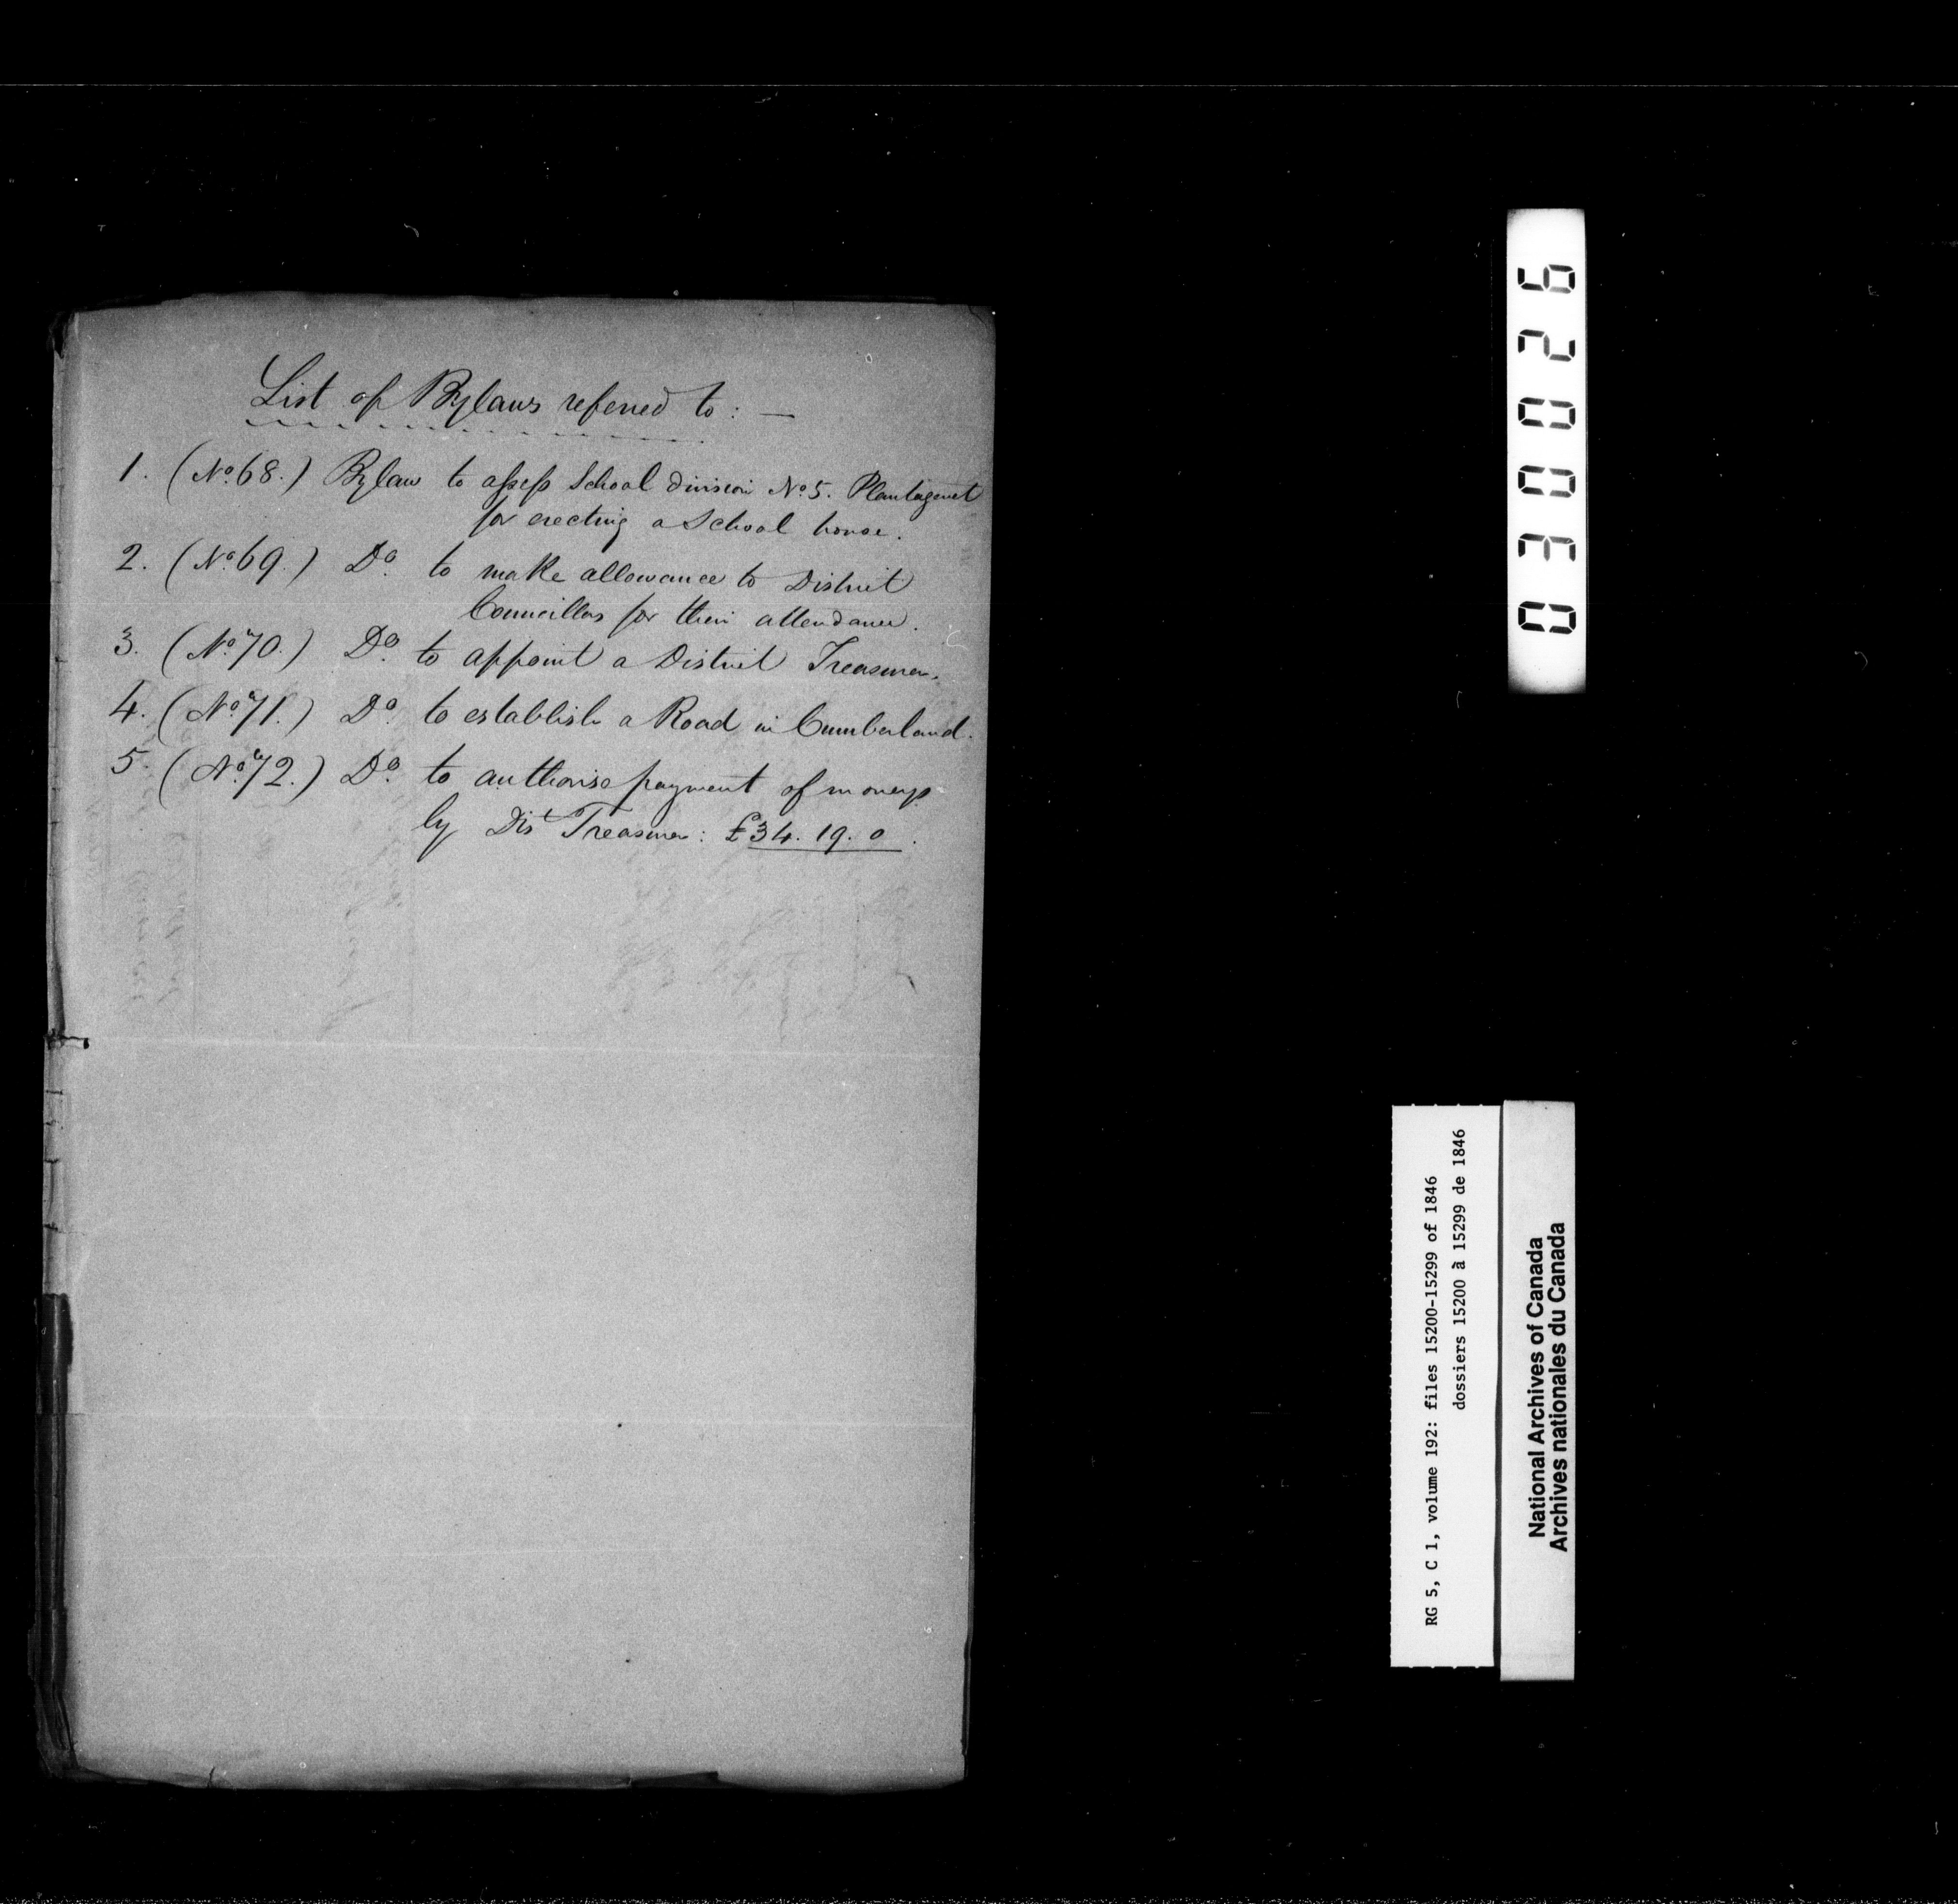 List of Bylaws referred to: —
1. (No. 68.) Bylaw to assess School division No. 5. Plantagenet
for erecting a School house.
2. (No. 69.) Do. to make allowance to District
Councillors for their attendance.
3. (No. 70.) Do. to appoint a District Treasurer.
4. (No. 71.) Do. to establish a Road in Cumberland.
5. (No. 72.) Do. to authorise payment of moneys
by Dist Treasurer: £34. 19. 0.
030026
RG 5, C 1, volume 192: files 15200-15299 of 1846
dossiers 15200 à 15299 de 1846
National Archives of Canada
Archives nationales du Canada